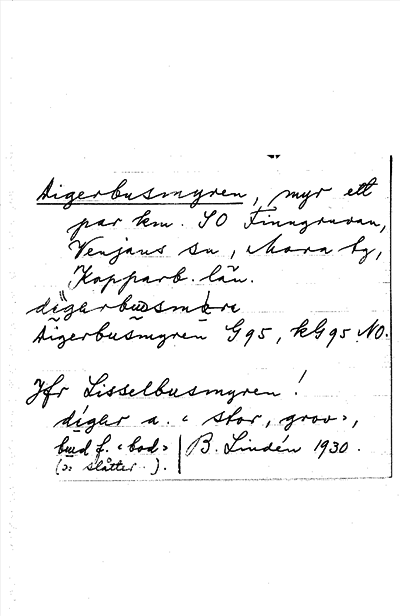 Digerbusmyren, myr ett
par km. SO Finngruvan,
Venjans sn, Mora tg,
Kopparb. län.
Digerbusmyren G95, kG95 NO.
Jfr Lisselbusmyren!
digər a. "stor, grov",
f. "bod"
(): slåtter- ). B. Lindén 1930.